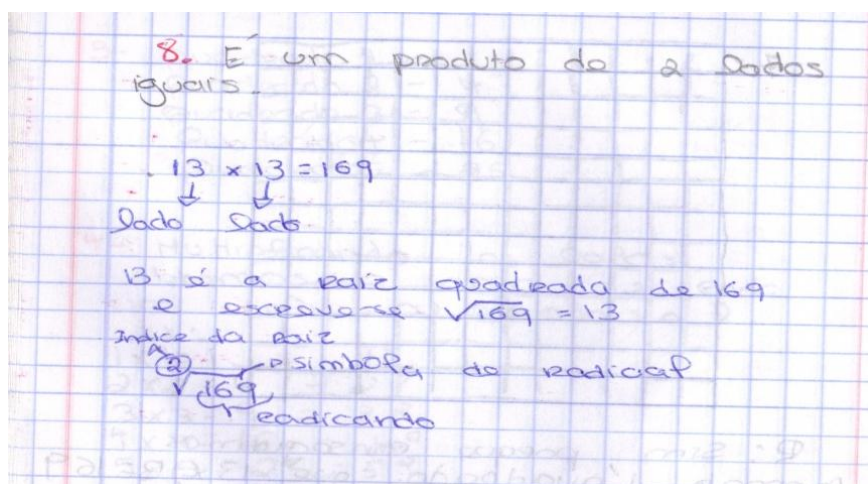 8. É um produto de 2 lados
iguais.
13 x 13 = 169
lado lado
13 é a raiz quadrada de 169
e escreve-se √169 = 13
Indice da raiz
2 simbola de radical
√169
radicando